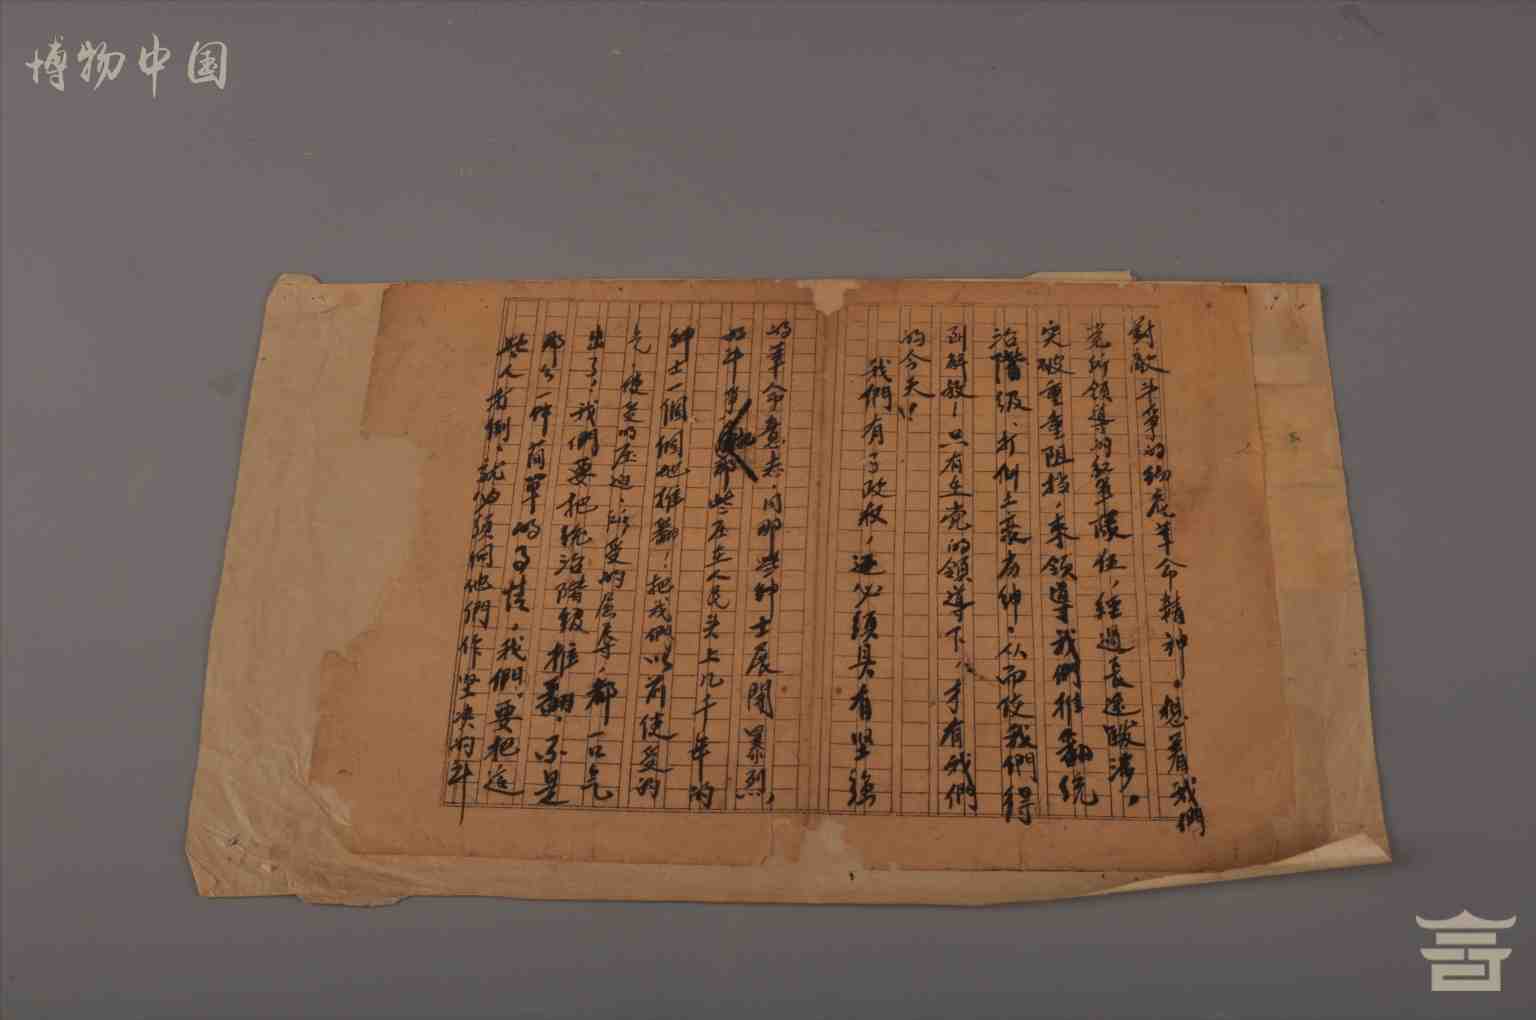 博物中国
對敵斗爭的物產革命精神。想着我們
党所領導的紅軍隊伍，經過長途跋涉。
突破重重阻挡，来領導我們推翻統
治階級、打倒土豪劣绅。从而使我們得
到解放！只有在党的領導下，才有我們
的今天！
我們有了政权，还必須具有坚强
的革命意志。同那些紳士展開暴烈，
的斗爭 那些压在人民头上几千年的
紳士一個個地推翻！把我們以前使受的
气，使受的压迫，所受的屈辱，都一口气
出了！我們要把統治階級推翻、不是
那么一件简單的事情。我們要把這
些人推倒、就必須同他們作坚决的斗